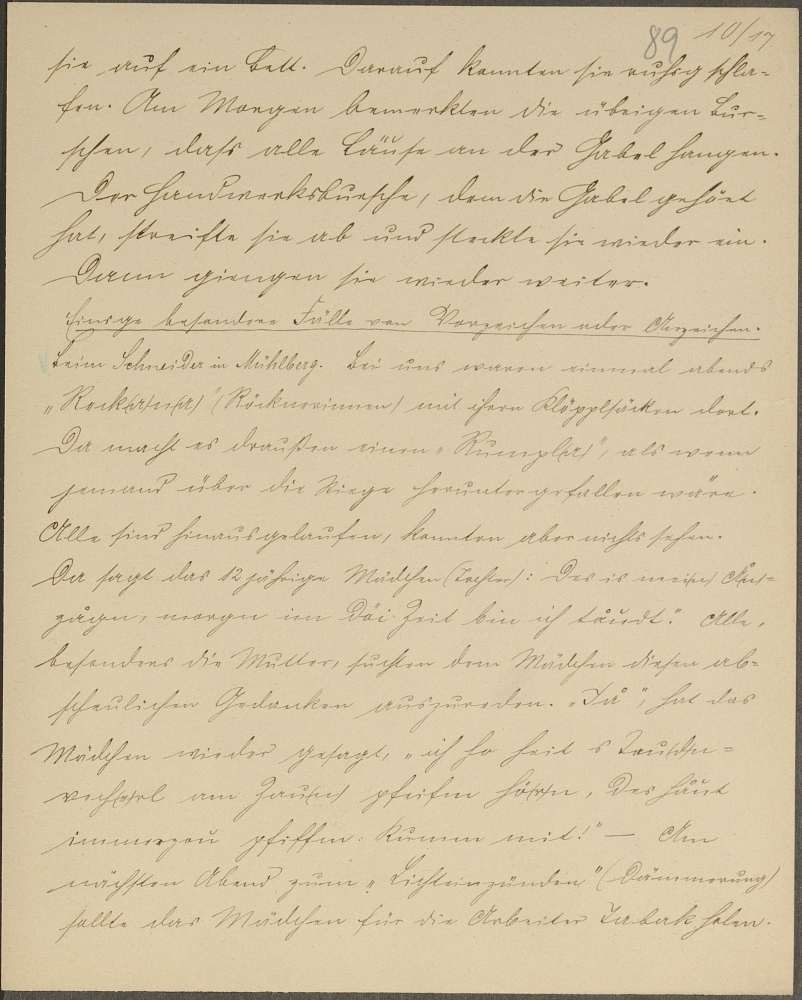 89 10/17
sie auf ein Bett. Darauf konnten sie ruhig schla-
fen. Am Morgen bemerkten die übrigen Bur-
schen, dass alle Läuse an der Gabel hangen.
Der Handwerksbursche, dem die Gabel gehört
hat, streifte sie ab und steckte sie wieder ein.
Dann giengen sie wieder weiter.
Einige besondere Fälle von Vorzeichen oder Anzeichen.
Beim Schneider in Mühlberg. Bei uns waren einmal abends
(Röcknerinnen) mit ihren Klöpplsäcken dort.
Da macht es draußen einen „Rumpl(a)", als wenn
jemand über die Stiege heruntergefallen wäre.
Alle sind hinausgelaufen, konnten aber nichts sehen.
Da sagt das 12 jährige Mädchen (Tochter): Des is mei(n) A(n)-
zägn, morgn im döi Zeit bin ich tåudt." Alle,
besonders die Mutter, suchten dem Mädchen diesen ab-
scheulichen Gedanken auszureden. „Jå", hat das
Mädchen wieder gesagt, „ich ho heit s Tou(d)n-
vech(e)rl am Zau(n) pfeifm hö(r)n, des håut
immerzou pfiffm: Kumm mit!" — Am
nächsten Abend zum „Lichteinzünden" (Dämmerung)
sollte das Mädchen für die Arbeiter Tabak holen.